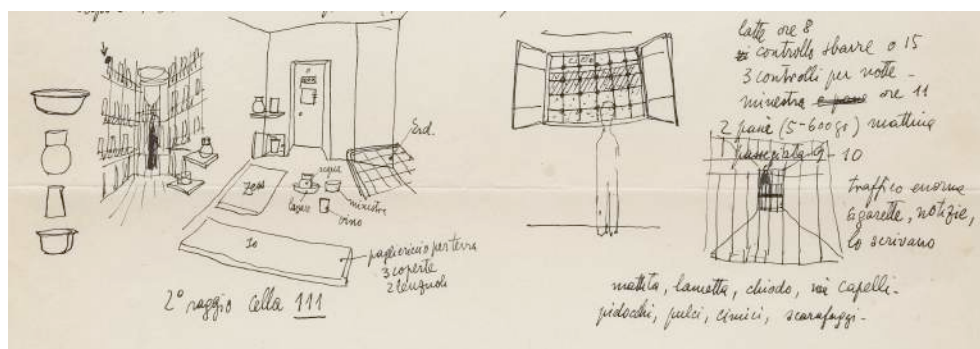 Erd.
Zeas
acqua
lavare
minestra
vino
Io
pagliericcio per terra
3 coperte
2 lenzuoli
2° raggio cella 111
latte ore 8
controllo sbarre o 15
3 controlli per notte -
minestra e pane ore 11
2 pane (5-600gr) mattina
passegiata 9-10
traffico enorme
sigarette, notizie,
lo scrivano
matita, lametta, chiodo, nei capelli-
pidocchi, pulci, cimici, scarafaggi-